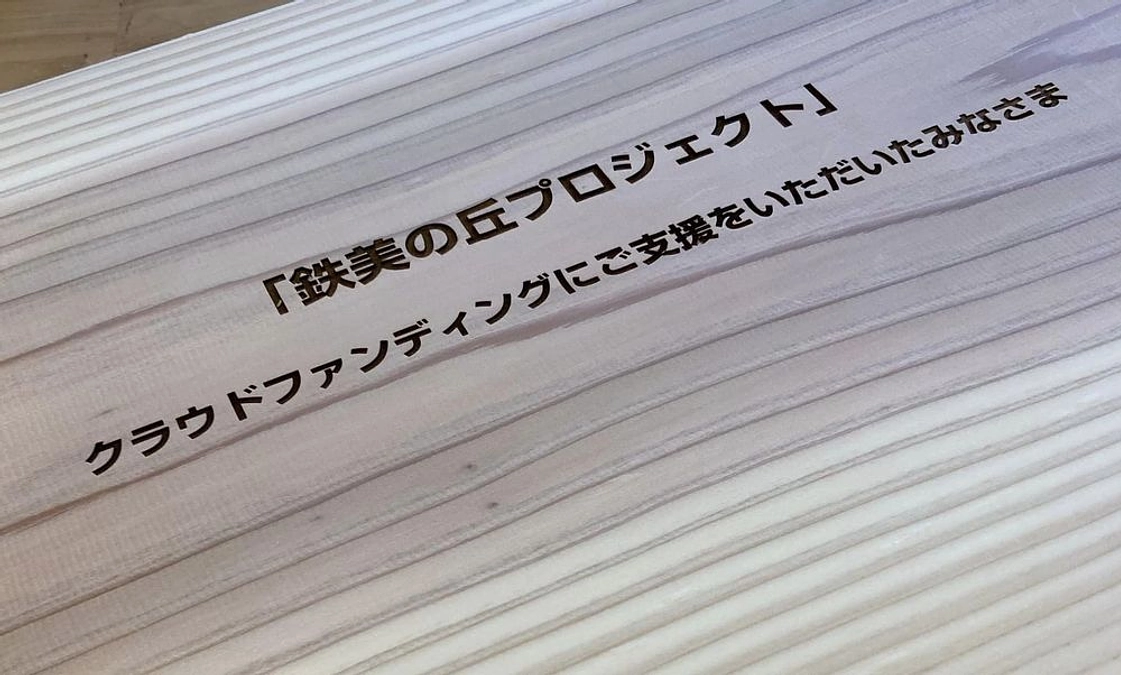 「鉄美の丘プロジェクト」
クラウドファンディングにご支援をいただいたみなさま